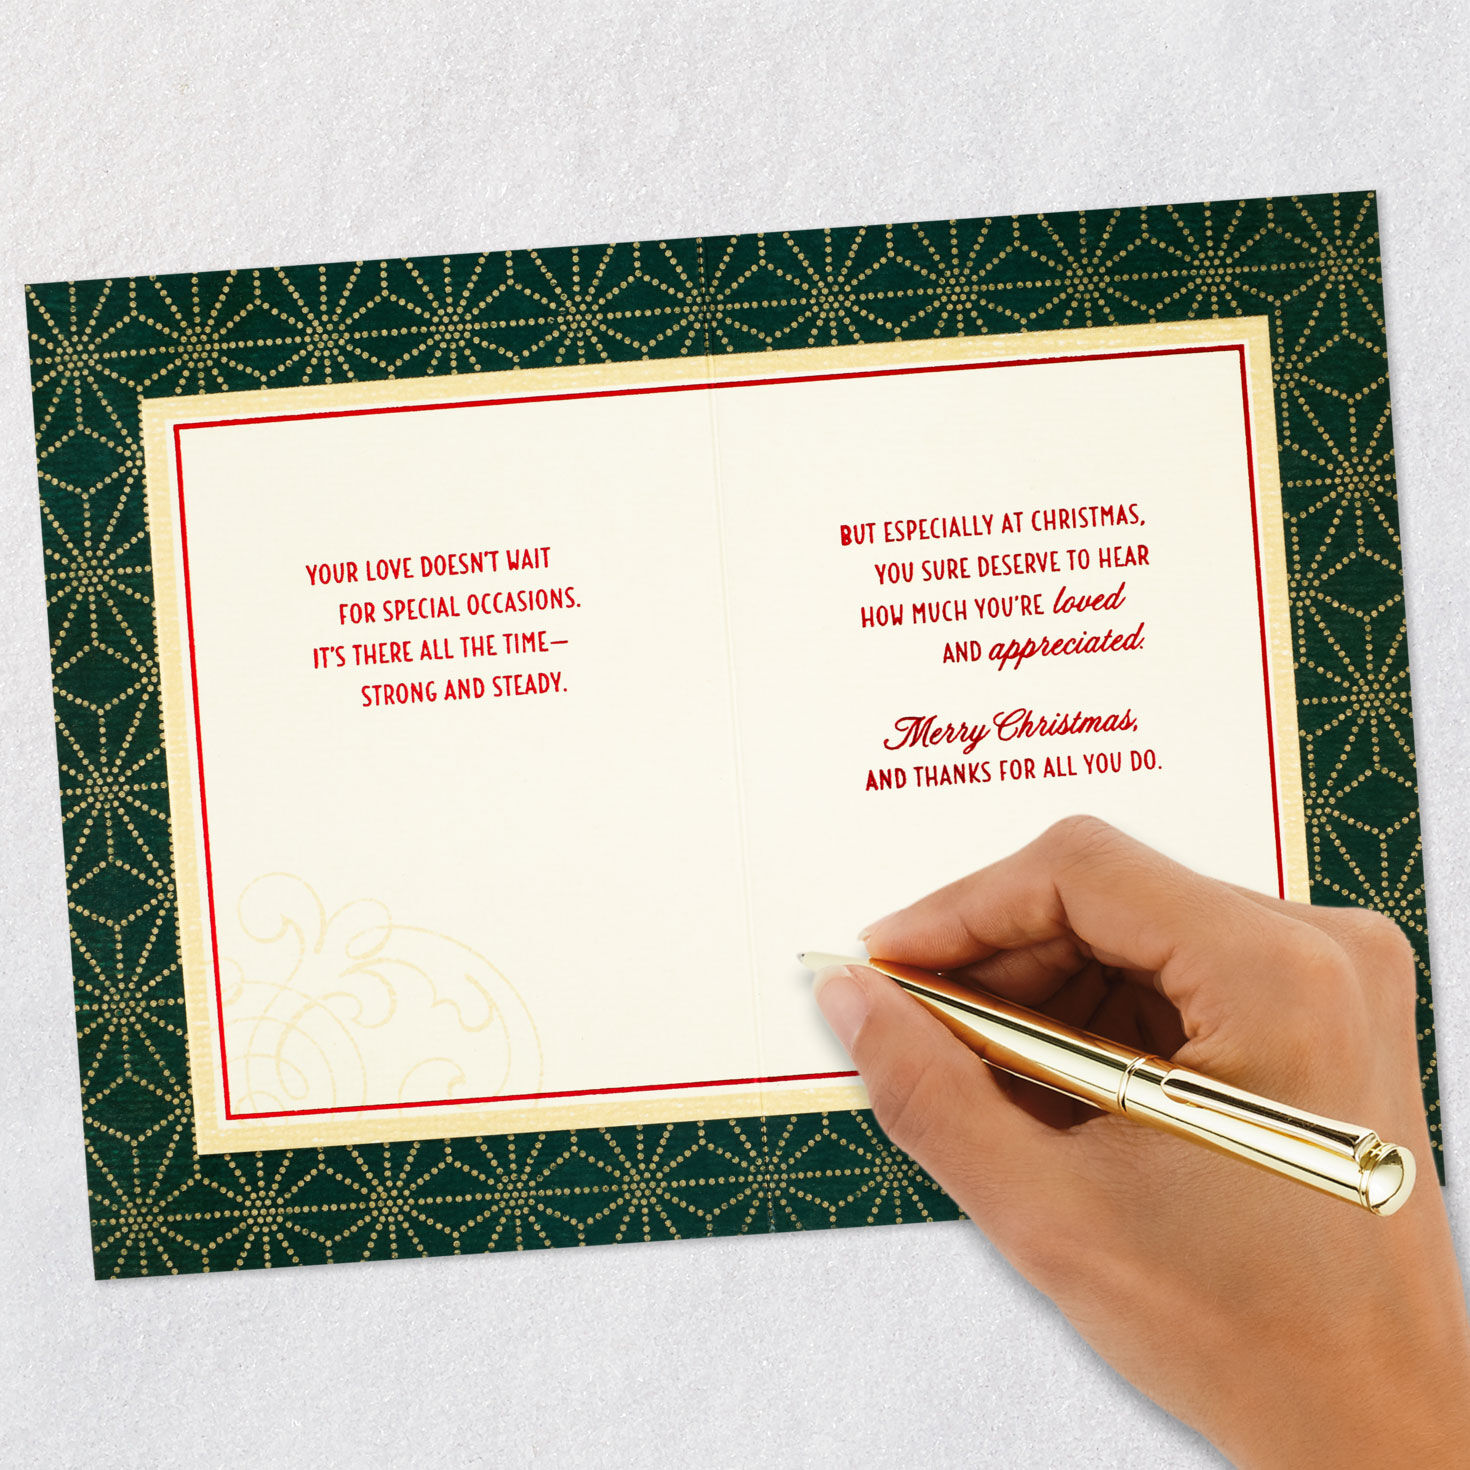 YOUR LOVE DOESN'T WAIT
FOR SPECIAL OCCASIONS.
IT'S THERE ALL THE TIME—
STRONG AND STEADY.
BUT ESPECIALLY AT CHRISTMAS,
YOU SURE DESERVE TO HEAR
HOW MUCH YOU'RE loved
AND appreciated.
Merry Christmas,
AND THANKS FOR ALL YOU DO.